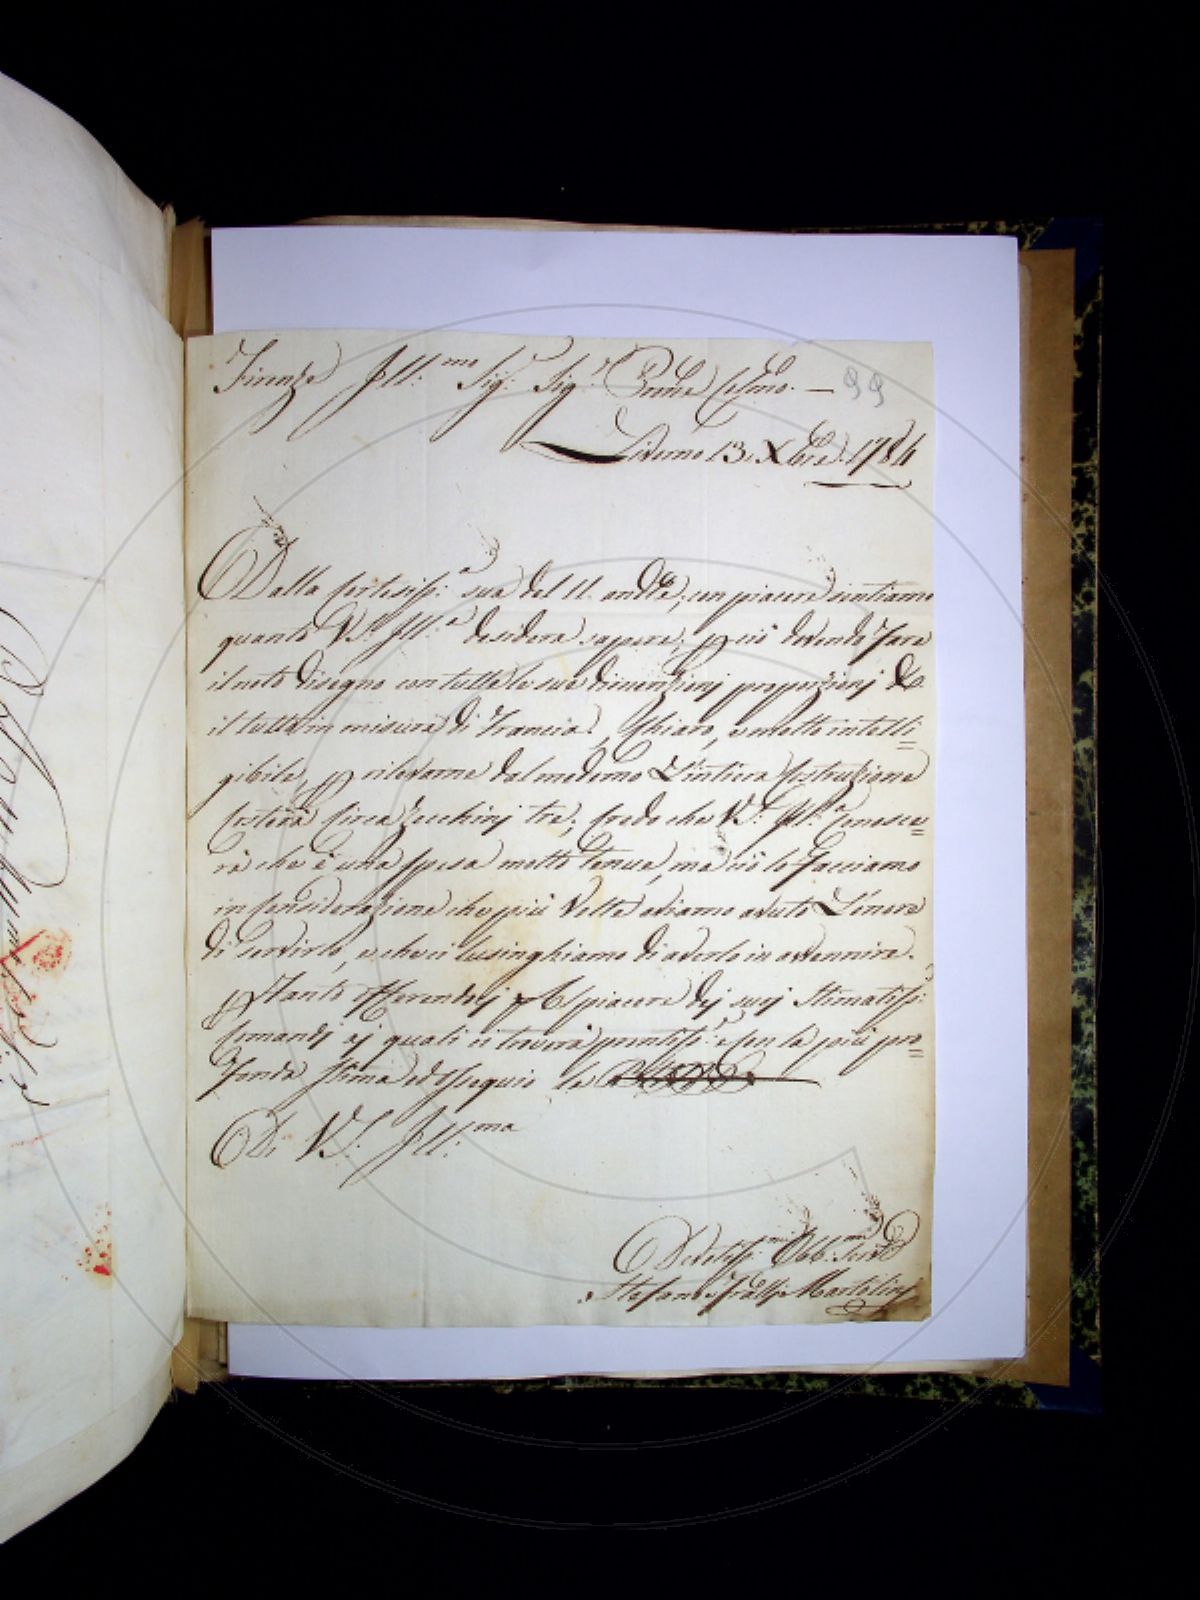 Firenze Ill:mo Sig:r Sig:r Prone Colmo. — 99
Livorno 13. Xbre. 1784
Dalla Cortesiss:a sua del 11. andte; con piacere sentiamo
quanto V.S: Ill:a desidera sapere; p ciò dovendo Fare
il noto disegno con tutte le sue dimenzionj proporzionj &c.
il tutto in misura di Francia, Chiaro, e molto intelli=
gibile, p rilevarne dal medemo L'intiera Costruzione
Costerà Circa Zecchinj tre; Credo che V.S: Ill:a Conosce=
rà che è una spesa molto tenue, ma ciò lo Facciamo
in Considerazione che più Volte abiamo avuto L'onore
di Servirlo, e che ci lusinghiamo di averlo in avvennire.
p Tanto Offerendocj piacere dej suoj Stimatiss:
Comandj aj quali ci troverà prontiss:i e Con la più pro=
Fonda Stima ed Ossequio
Di V.S: Ill:ma
Devotiss:mi Obb:mi Servi
Stefano e Frallj Martolinj